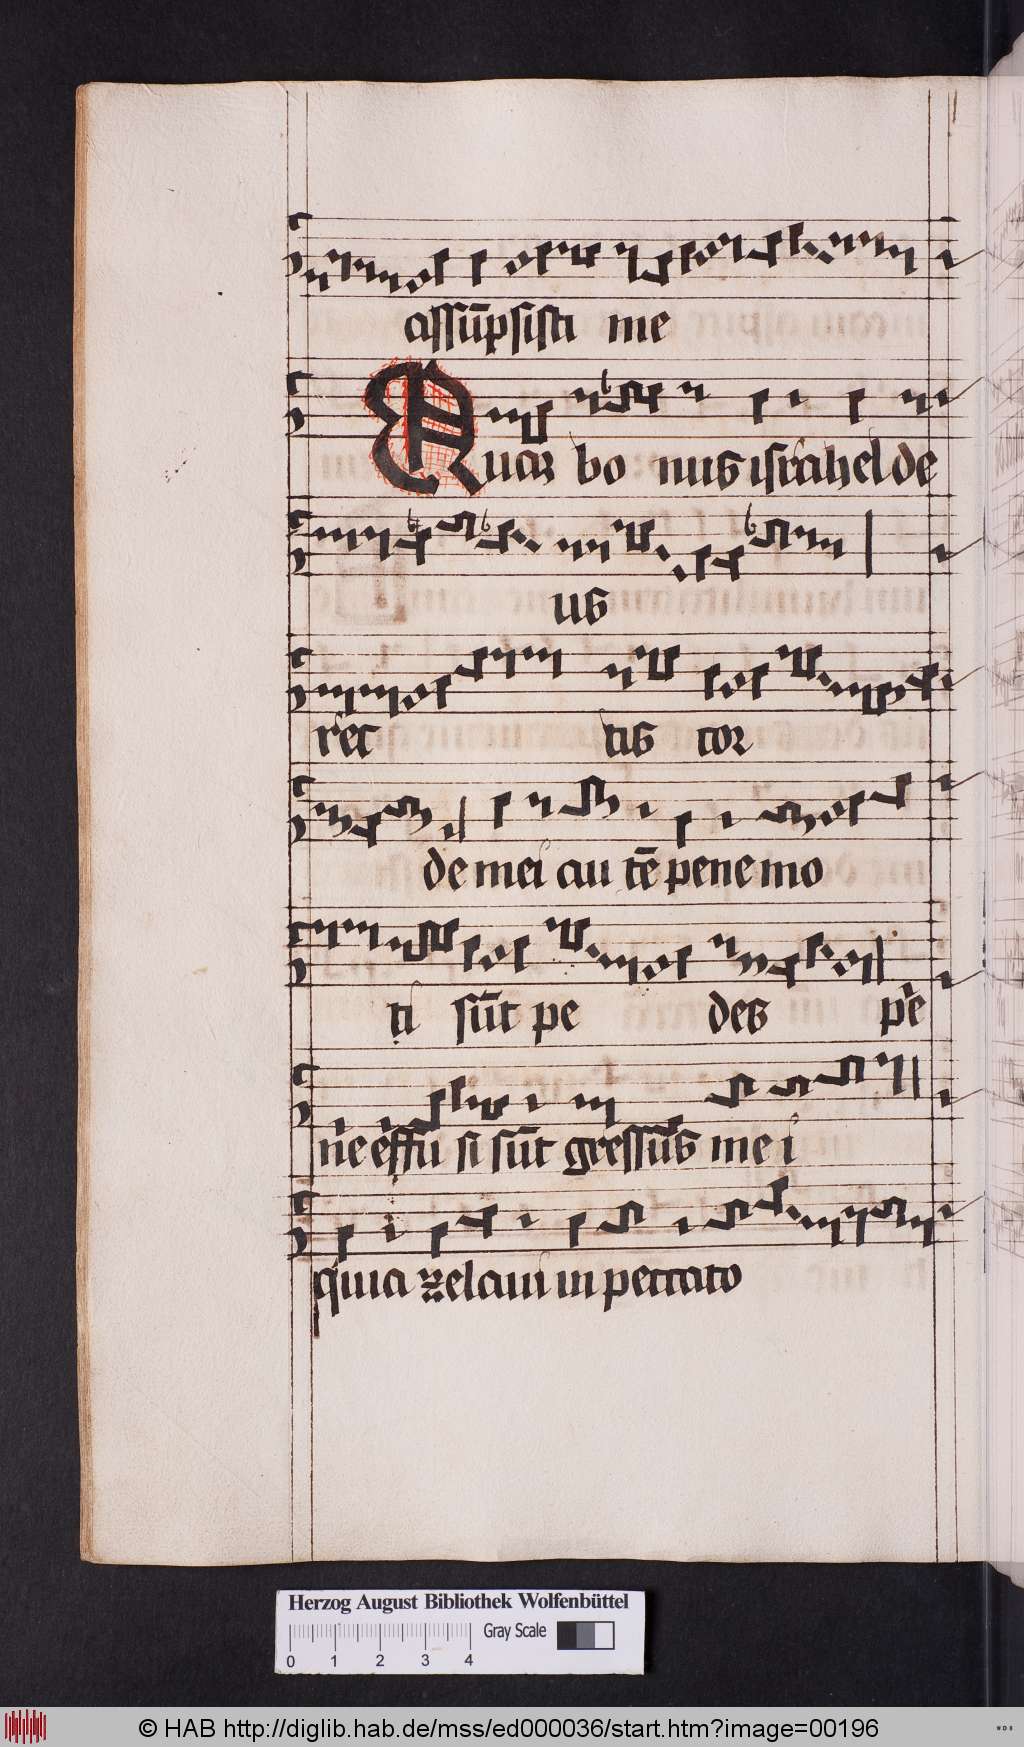 assūpsisti me
Quaꝫ bo nus israhel de
us
rec tis cor
de mei au tē pene mo
ti sūt pe des pe
ne effu si sūt gressus me i
quia zelaui in peccato
Herzog August Bibliothek Wolfenbüttel
Gray Scale
0 1 2 3 4
© HAB http://diglib.hab.de/mss/ed000036/start.htm?image=00196